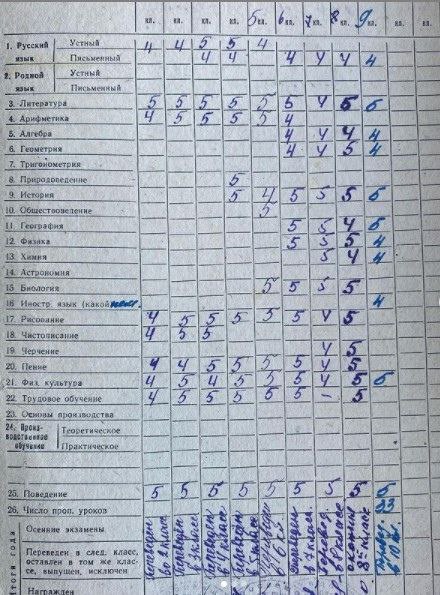 кл. кл. кл. кл. 5 кл. 6 кл. 7 кл. 8 кл. 9 кл. кл.
1. Русский язык Устный 4 4 5 5 4
Письменный 4 4 4 4 4 4
2. Родной язык Устный
Письменный
3. Литература 5 5 5 5 5 5 4 5 5
4. Арифметика 4 5 5 5 5 4
5. Алгебра 4 4 4 4
6. Геометрия 4 4 5 4
7. Тригонометрия
8. Природоведение 5
9. История 5 4 5 5 5 5
10. Обществоведение 5
11. География 5 5 4 5
12. Физика 5 5 5 4
13. Химия 5 4 4
14. Астрономия
15. Биология 5 5 5 5
16. Иностр. язык (какой) нем. 4
17. Рисование 4 5 5 5 5 5 4 5
18. Чистописание 4 5 5
19. Черчение 4 5
20. Пение 4 4 5 5 5 5 4 5
21. Физ. культура 4 5 4 5 5 5 4 5 5
22. Трудовое обучение 4 5 5 5 5 5 – 5
23. Основы производства
24. Произ-водственное обучение Теоретическое
Практическое
25. Поведение 5 5 5 5 5 5 5 5 5
26. Число проп. уроков 23
Осенние экзамены
Переведен в след. класс, оставлен в том же классе, выпущен, исключен
Награжден
Итоги года
переведен во 2 класс
переведен в 3 класс
переведен
переведен
переведен
переведен в 7 класс
в 8 класс
8 классов
в 10 кл.